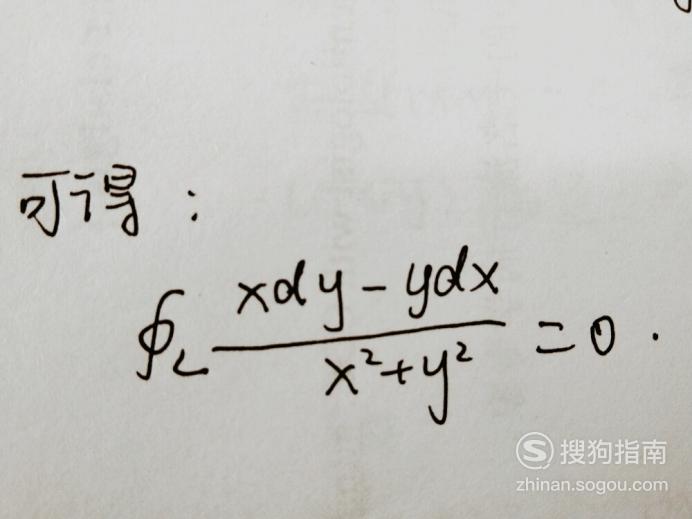 可得：
∮_L (xdy - ydx) / (x² + y²) = 0.
搜狗指南
zhinan.sogou.com